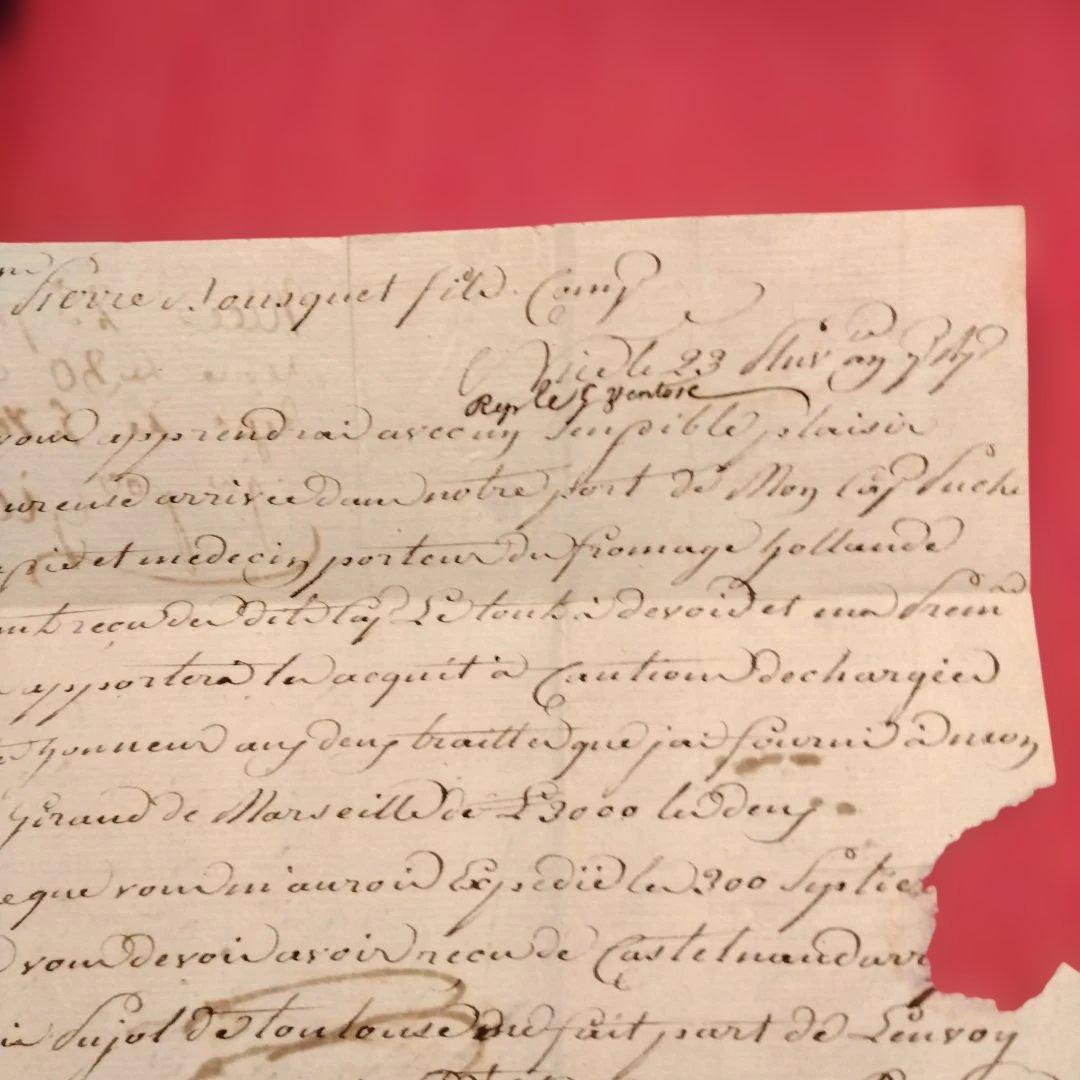 Pierre Bousquet fils Comp
le 23 Niv an 7 Rp
Rep le 5 ventose
vous apprendrai avec un sensible plaisir
ureuse arrivée dans notre port de Mon Cap Puche
et medecin porteur du fromage hollande
reçu des dits Cap Le tout à devoir et ma Prem
apportera les acquit à Caution dechargées
honneur aux deux traittes que jai fourni à mon
Giraud de Marseille de £ 3000 les deux
que vous m'auroit Expedié les 200 Septie
vous devoit avoir reçu de Castelnaudarr
Pujol de toulouse me fait part de L'envoy